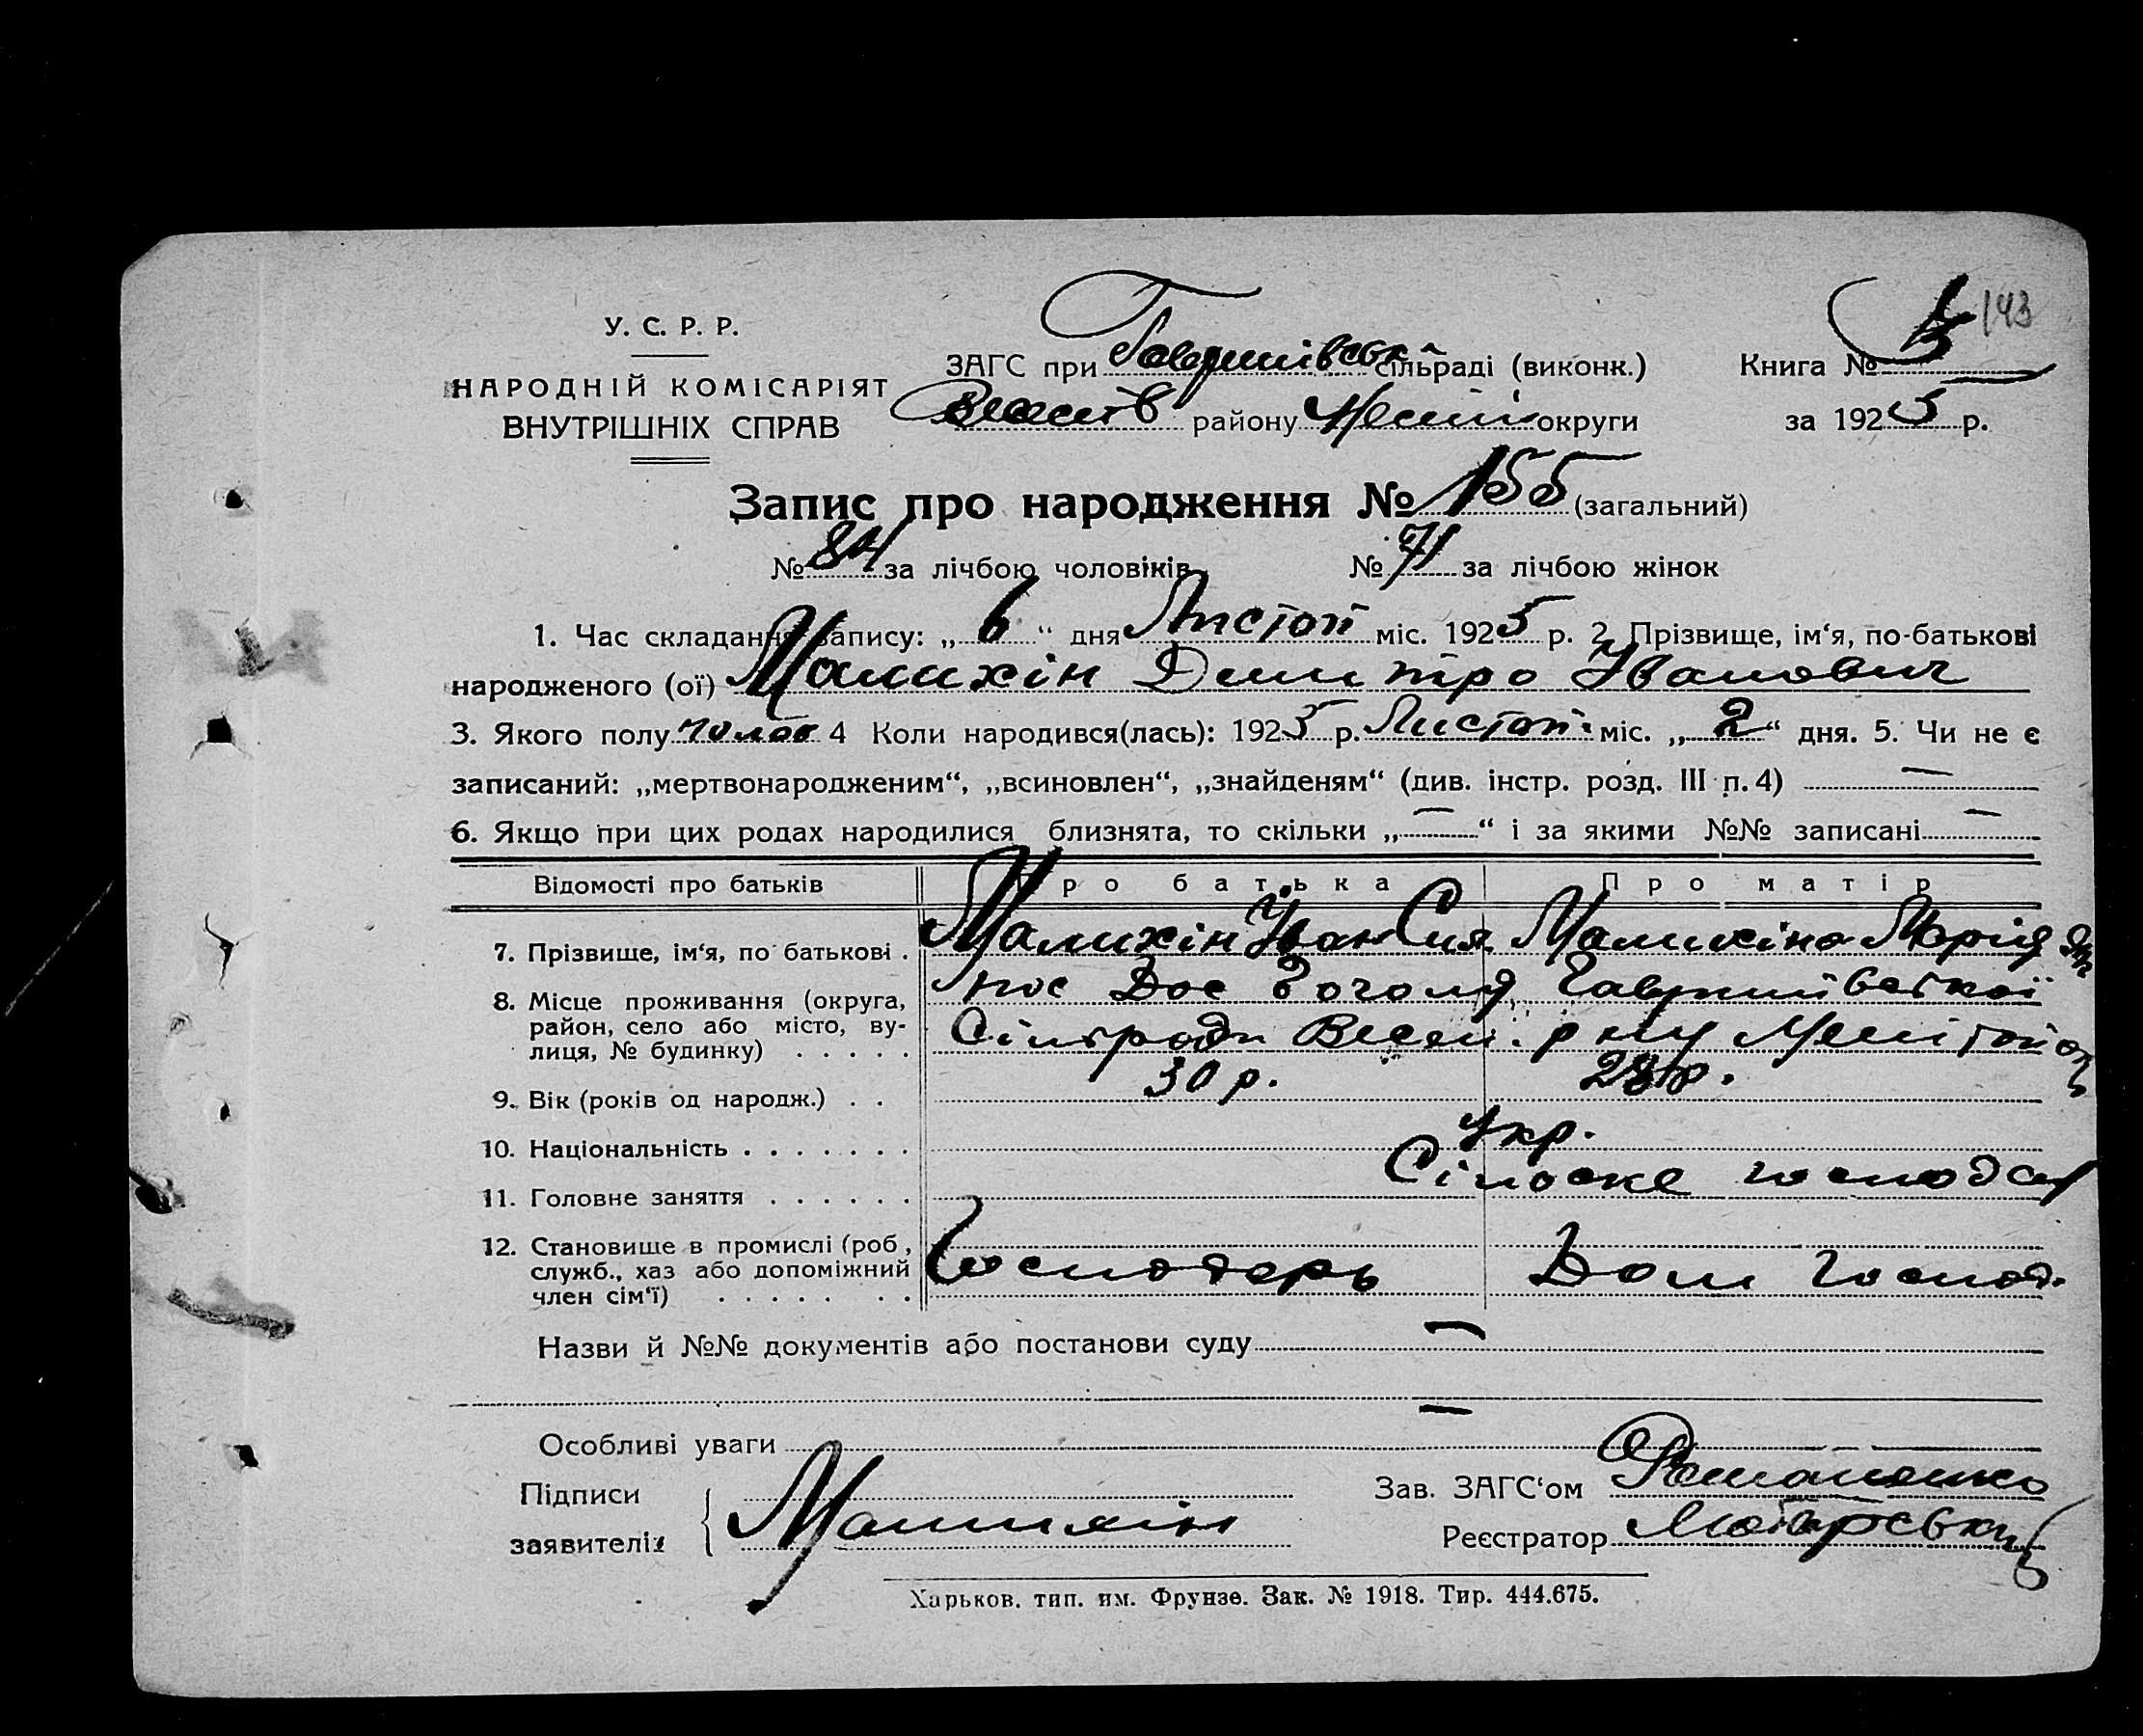 143
У. С. Р. Р.
НАРОДНІЙ КОМІСАРІЯТ
ВНУТРІШНІХ СПРАВ
ЗАГС при Гаврилівськ сільраді (виконк.)
району округи
Книга №
за 1925 р.
Запис про народження № 155 (загальний)
№ 84 за лічбою чоловіків № 71 за лічбою жінок
1. Час складання запису: „ 6 “ дня Листоп міс. 1925 р. 2. Прізвище, ім‘я, по-батькові
народженого (ої) Малихін Дмитро Іванович
3. Якого полу чолов 4 Коли народився(лась): 1925 р. Листоп. міс. „ 2 “ дня. 5. Чи не є
записаний: „мертвонародженим“, „всиновлен“, „знайденям“ (див. інстр. розд. III п. 4) —
6. Якщо при цих родах народилися близнята, то скільки „ — “ і за якими №№ записані —
Відомості про батьків Про батька Про матір
7. Прізвище, ім‘я, по батькові . Малихін Іван Малихіна Марія
8. Місце проживання (округа, пос Гаврилівської
район, село або місто, ву- Сільради р ну
лиця, № будинку) . . . . .
9. Вік (років од народж.) . . 30 р. 28 р.
10. Національність . . . . . . . Укр.
11. Головне заняття . . . . . . Сільске господар
12. Становище в промислі (роб,
служб., хаз або допоміжний Господарь Дом господ.
член сім‘ї) . . . . . . .
Назви й №№ документів або постанови суду —
—
Особливі уваги
Підписи
заявителів Малихін
Зав. ЗАГС‘ом Романенко
Реєстратор
Харьков. тип. им. Фрунзе. Зак. № 1918. Тир. 444.675.